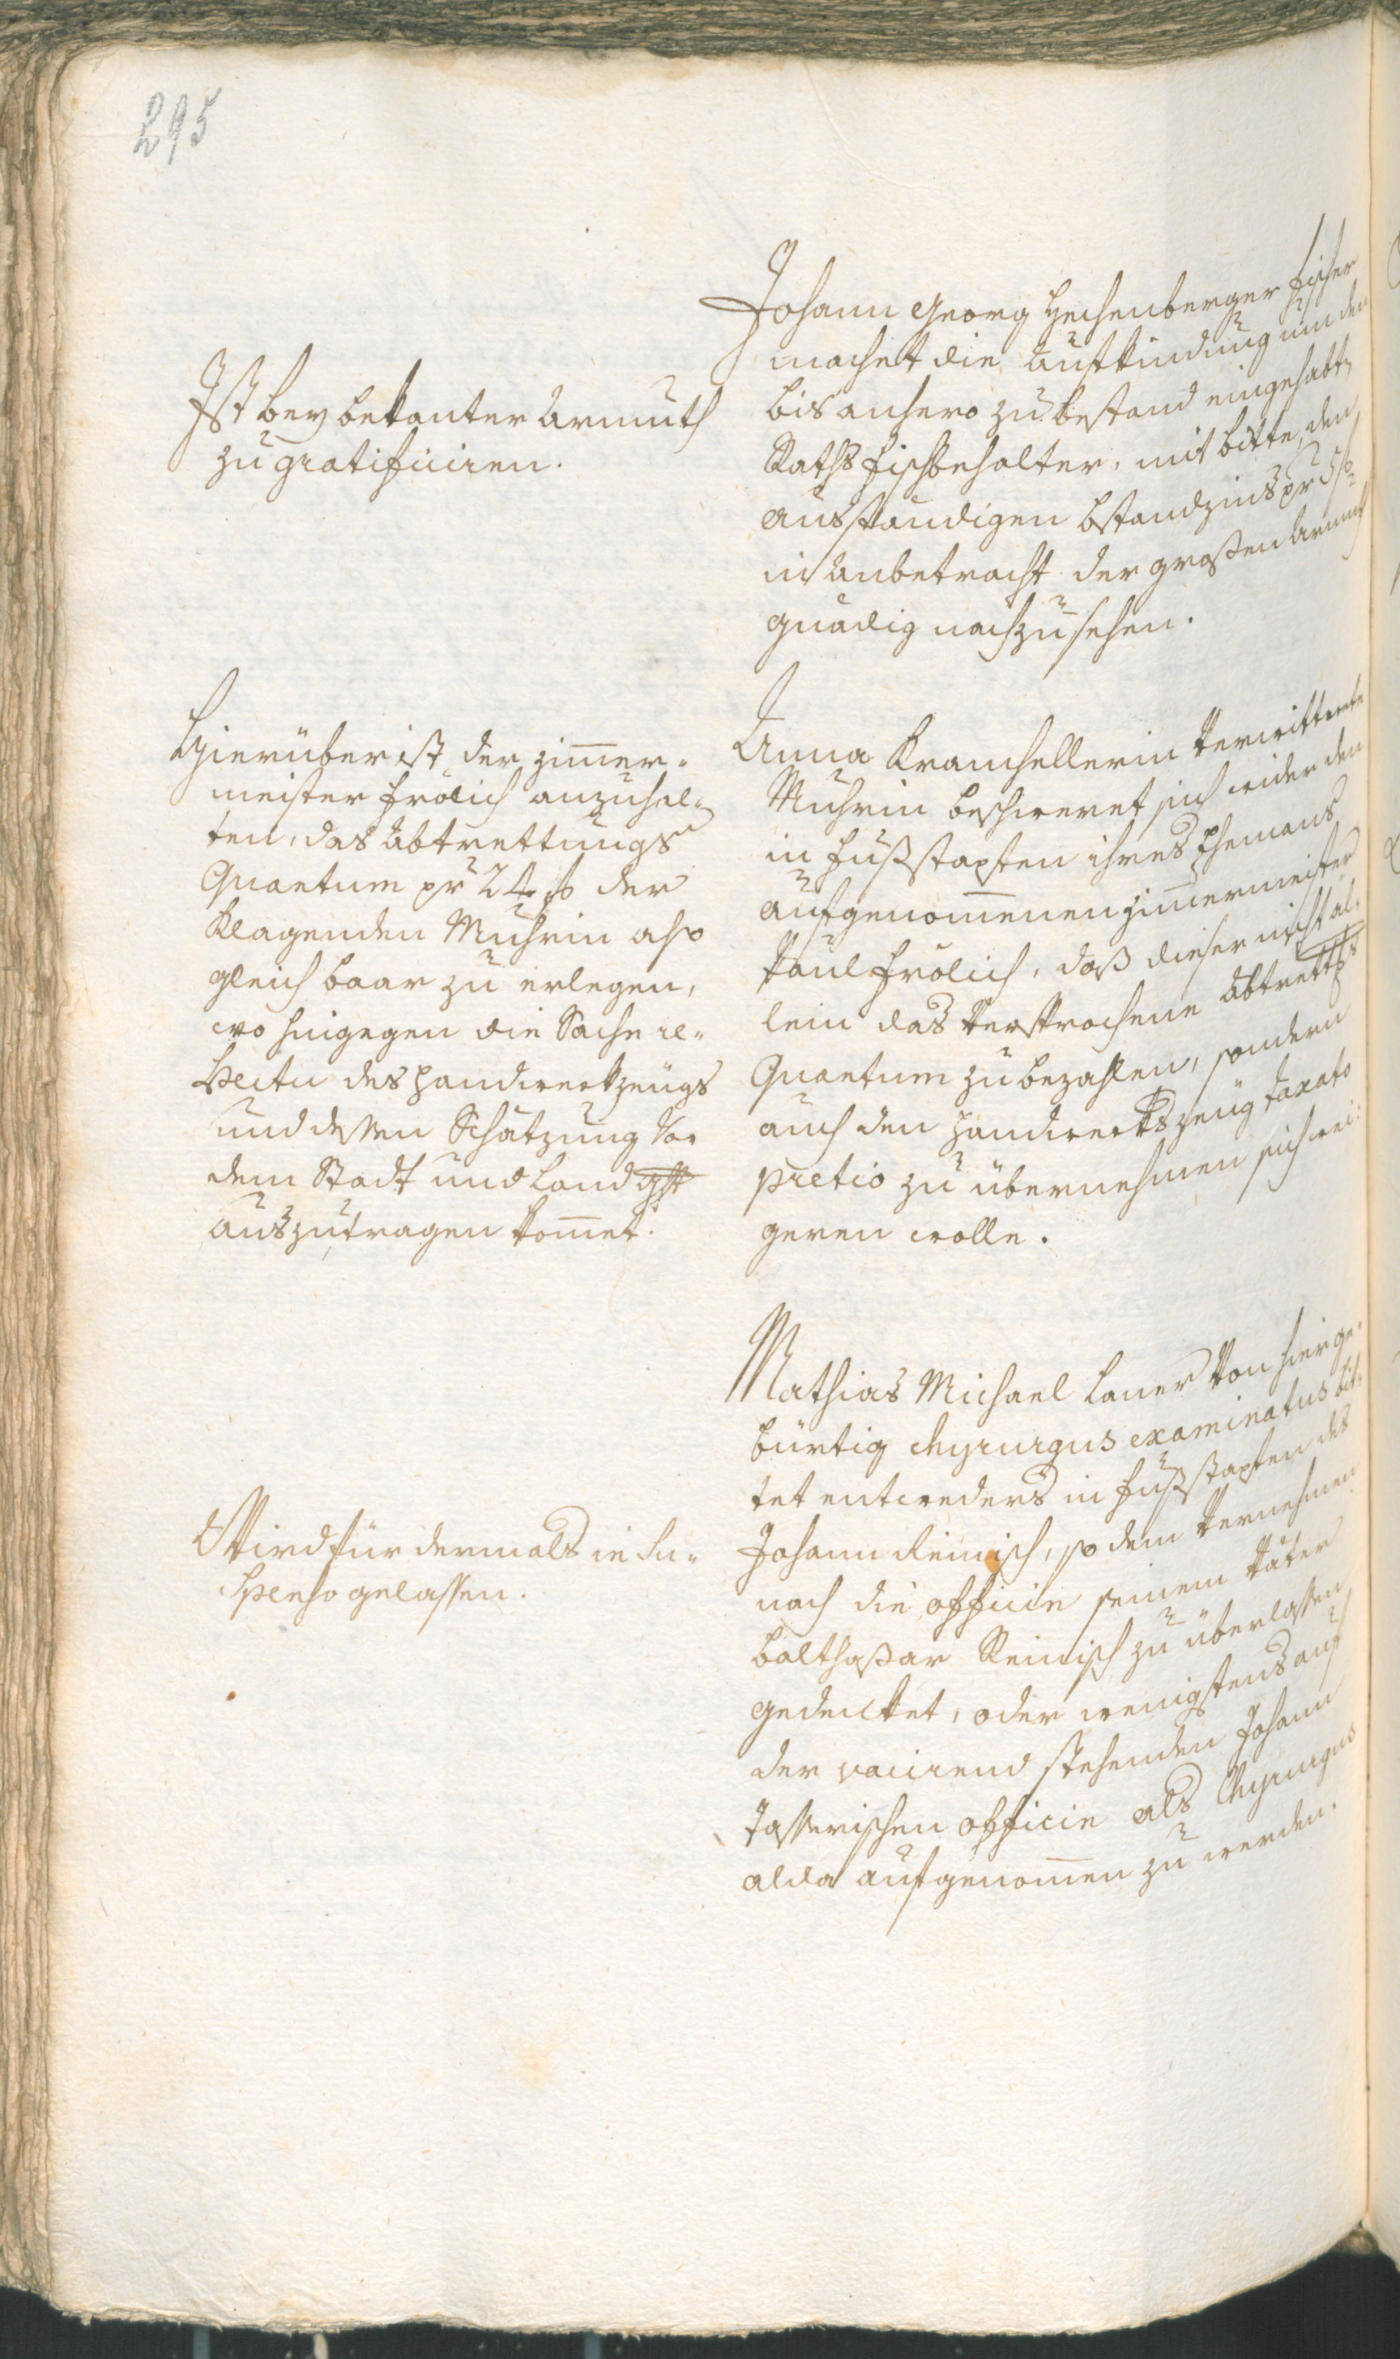 295
Johann Georg Hechenberger Fischer
machet die Aufkündung um den
bis anhero zu bestand eingehabten
Raths fischbehalter, mit bitte, den
ausständigen bstandzins pr 5 f
in anbetracht der grossen Armuth
gnädig nachzusehen.
Ist bey bekanter Armuth
zu gratificiren.
Anna Kranchellerin verwittwete
Muhrin beschweret sich wider den
in fußstapfen ihres Ehemans
aufgenomenen Zimermeister
Paul Frölich, daß dieser nicht al¬
lein das versprochene Abtrettgs
Quantum zu bezahlen, sondern
auch den Handwerkszeug taxato
pretio zu übernehmen sich wei¬
geren wolle.
Hierüber ist der Zimer¬
meister Frölich anzuhal¬
ten, das Abtrettungs
Quantum pr 24 f der
Klagenden Muhrin also
gleich baar zu erlegen,
wo hingegen die Sache re¬
spectu des Handwerkzeugs
und dessen Schätzung vor
dem Stadt und Landght
auszutragen komet.
Mathias Michael Lauer von hier ge¬
bürtig chyrurgus examinatus bit¬
tet entweders in fußstapfen des
Johann Reinisch, so dem vernehmen
nach die officin seinem Vater
Balthasar Reinisch zu überlassen
gedencket, oder wenigstens auf
der vacirend stehenden Johann
Tasserischen officin als Chyrurgus
alda aufgenomen zu werden.
Wird für dermals in su¬
spenso gelassen.